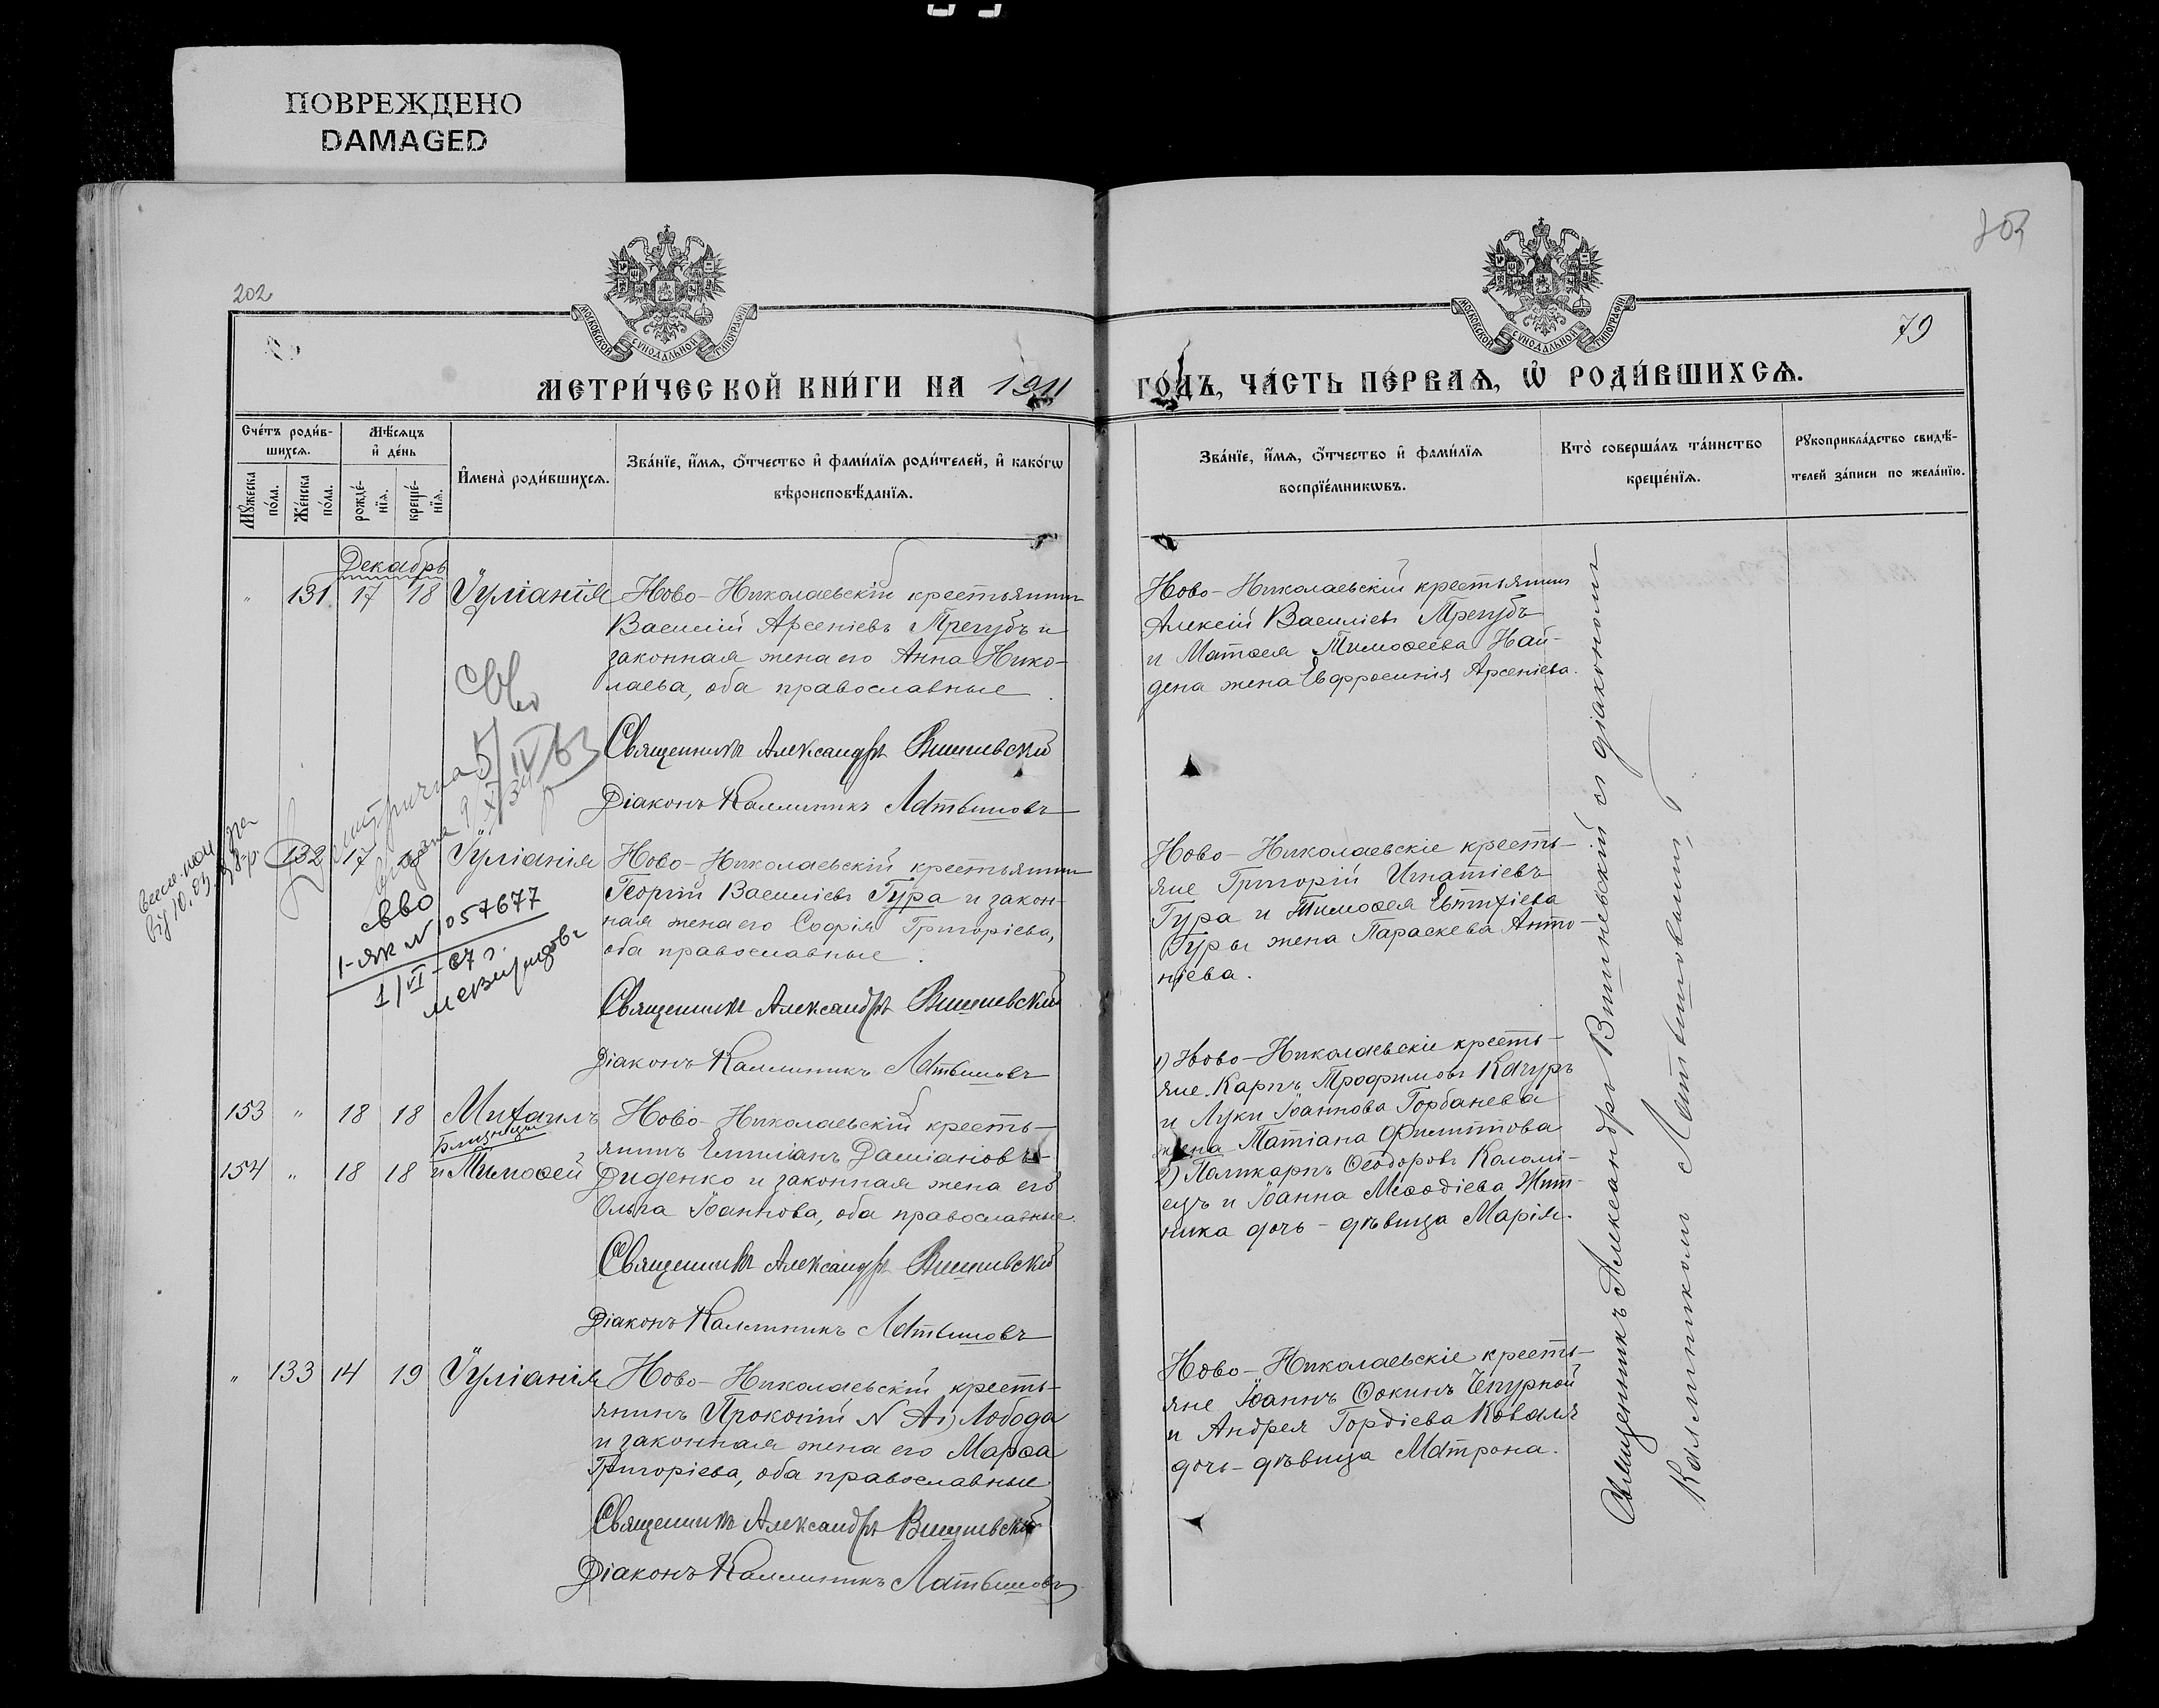 ПОВРЕЖДЕНО
DAMAGED
202
203
79
МОСКОВСКОЙ СѴНОДАЛЬНОЙ ТИПОГРАФІИ
МОСКОВСКОЙ СѴНОДАЛЬНОЙ ТИПОГРАФІИ
МЕТРИ́ЧЕСКОЙ КНИ́ГИ НА 1911 ГО́ДЪ, ЧА́СТЬ ПЕ́РВАѦ, Ѡ҆ РОДИ́ВШИХСѦ.
Сче́тъ роди́в-
шихсѧ.
Мꙋ́жеска по́ла.
Же́нска по́ла.
Мѣ́сѧцъ
и҆ де́нь
рожде́-
нїѧ.
креще́-
нїѧ.
И҆мена̀ роди́вшихсѧ.
Зва́нїе, и҆́мѧ, ѻ҆́тчество и҆ фами́лїѧ роди́телей, и҆ како́гѡ
вѣроисповѣ́данїѧ.
Зва́нїе, и҆́мѧ, ѻ҆́тчество и҆ фами́лїѧ
воспрїе́мникѡвъ.
Кто̀ соверша́лъ та́инство
креще́нїѧ.
Рꙋкоприкла́дство свидѣ́-
телей за́писи по жела́нїю.
Декабрь
" 131 17 18 Іуліанія
Ново-Николаевскій крестьянинъ
Василій Арсеніевъ Трегубъ и
законная жена его Анна Нико-
лаева, оба православные
Священникъ Александръ Вишневскій
Діаконъ Каллиникъ Матвиновъ
Ново-Николаевскій крестьянинъ
Алексій Василіевъ Трегубъ
и Матѳея Тимоѳеева Най-
дена жена Евфросинія Арсеніева.
5/IV 63
132 17 18 Іуліанія
свво
1-ЯК N 1057677
1/VI-67 г.
Ново-Николаевскій крестьянинъ
Георгій Василіевъ Гура и закон-
ная жена его Софія Григоріева,
оба православные.
Священникъ Александръ Вишневскій
Діаконъ Каллиникъ Матвиновъ
Ново-Николаевскіе кресть-
яне Григорій Игнатіевъ
Гура и Тимоѳея Евтихіева
Гуры жена Параскева Анто-
ніева.
153 " 18 18 Михаилъ
близнецы
154 " 18 18 и Тимоѳей
Ново-Николаевскій кресть-
янинъ Емиліанъ Даміановъ
Диденко и законная жена его
Ольга Іоаннова, оба православные.
Священникъ Александръ Вишневскій
Діаконъ Каллиникъ Матвиновъ
1) Ново-Николаевскіе кресть-
яне Карпъ Трофимовъ Качуръ
и Луки Іоаннова Горбанева
жена Татіана Филиппова
2) Поликарпъ Ѳеодоровъ Коломі-
ецъ и Іоанна Меѳодіева Жит-
ника дочь - дѣвица Марія.
" 133 14 19 Іуліанія
Ново-Николаевскій кресть-
янинъ Прокопій Лобода
и законная жена его Марѳа
Григоріева, оба православные.
Священникъ Александръ Вишневскій
Діаконъ Каллиникъ Матвиновъ
Ново-Николаевскіе кресть-
яне Іоаннъ Ѳокинъ Чепурной
и Андрея Гордіева Коваля
дочь - дѣвица Матрона.
Священникъ Александръ Вишневскій съ діакономъ
Каллиникомъ Матвиновымъ